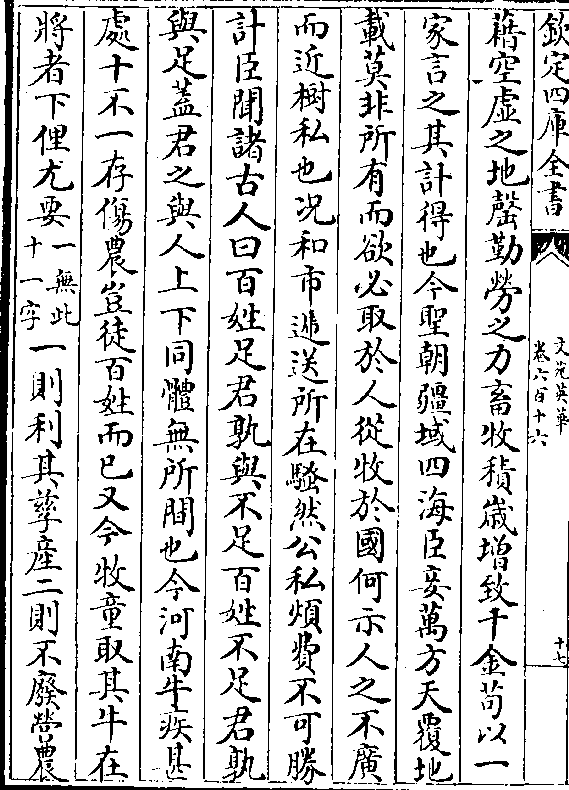 欽定四庫全書
文苑英華
卷六百十六
十七
藉空虛之地罄勤勞之力畜牧積歲增致千金苟以一
家言之其計得也今聖朝疆域四海臣妾萬方天覆地
載莫非所有而欲必取於人從牧於國何示人之不廣
而近樹私也况和市遞送所在騷然公私煩費不可勝
計臣聞諸古人曰百姓足君孰與不足百姓不足君孰
與足蓋君之與人上下同體無所間也今河南牛疾甚
處十不一存傷農豈徒百姓而已又今牧童取其牛在
將者下俚尤要一無此十一字一則利其孳產二則不廢營農